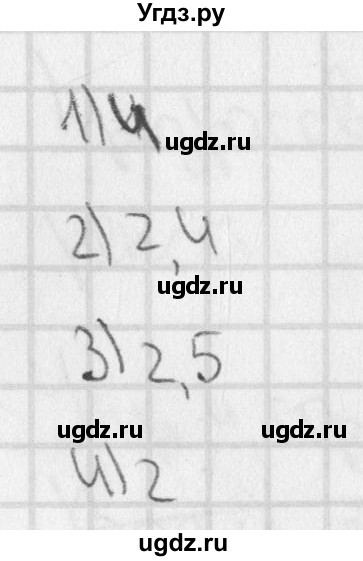 Угдз.ру
1) 4
ugdz.ru
2) 2,4
ugdz.ru
3) 2,5
ugdz.ru ugdz.ru
4) 2
ugdz.ru